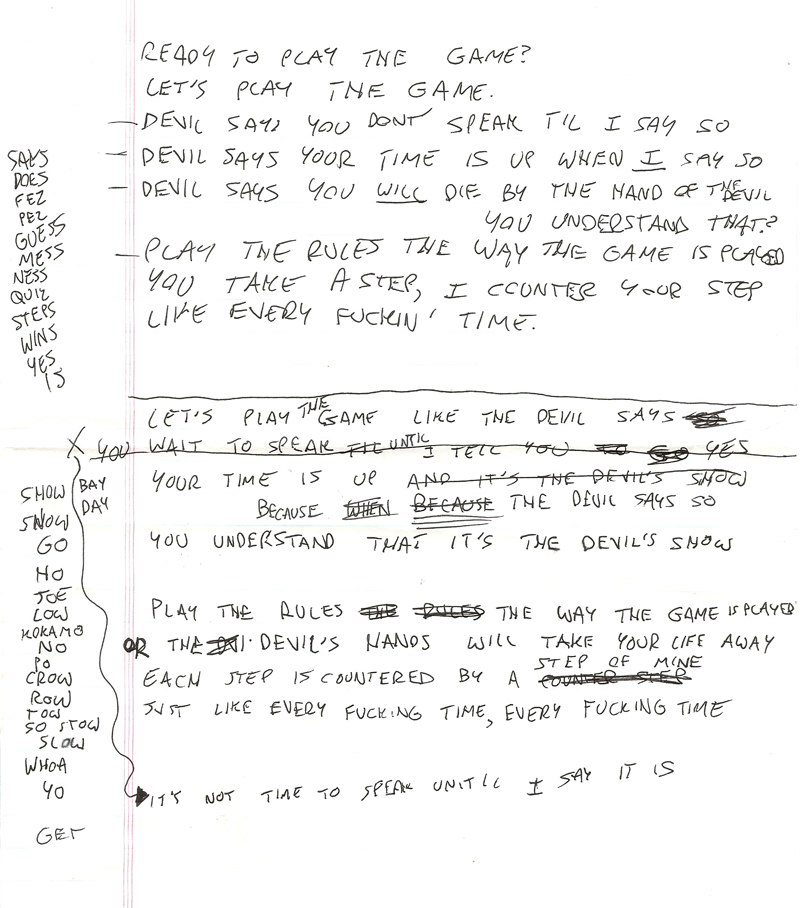 READY TO PLAY THE GAME?
LET'S PLAY THE GAME.
— DEVIL SAYS YOU DONT SPEAK TIL I SAY SO
— DEVIL SAYS YOUR TIME IS UP WHEN I SAY SO
— DEVIL SAYS YOU WILL DIE BY THE HAND OF THE DEVIL
YOU UNDERSTAND THAT?
— PLAY THE RULES THE WAY THE GAME IS PLAYED
YOU TAKE A STEP, I COUNTER YOUR STEP
LIKE EVERY FUCKIN' TIME.
SAYS
DOES
FEZ
PEZ
GUESS
MESS
NESS
QUIZ
STEPS
WINS
YES
IS
LET'S PLAY THE GAME LIKE THE DEVIL SAYS SO
X YOU WAIT TO SPEAK TIL UNTIL I TELL YOU TO GO YES
YOUR TIME IS UP AND IT'S THE DEVIL'S SHOW
BECAUSE WHEN BECAUSE THE DEVIL SAYS SO
YOU UNDERSTAND THAT IT'S THE DEVIL'S SHOW
PLAY THE RULES THE RULES THE WAY THE GAME IS PLAYED
OR THE DEVIL'S HANDS WILL TAKE YOUR LIFE AWAY
EACH STEP IS COUNTERED BY A COUNTER STEP STEP OF MINE
JUST LIKE EVERY FUCKING TIME, EVERY FUCKING TIME
IT'S NOT TIME TO SPEAK UNITLL I SAY IT IS
SHOW BAY
SNOW DAY
GO
HO
JOE
LOW
KOKAMO
NO
PO
CROW
ROW
TOW
SO STOW
SLOW
WHOA
YO
GET